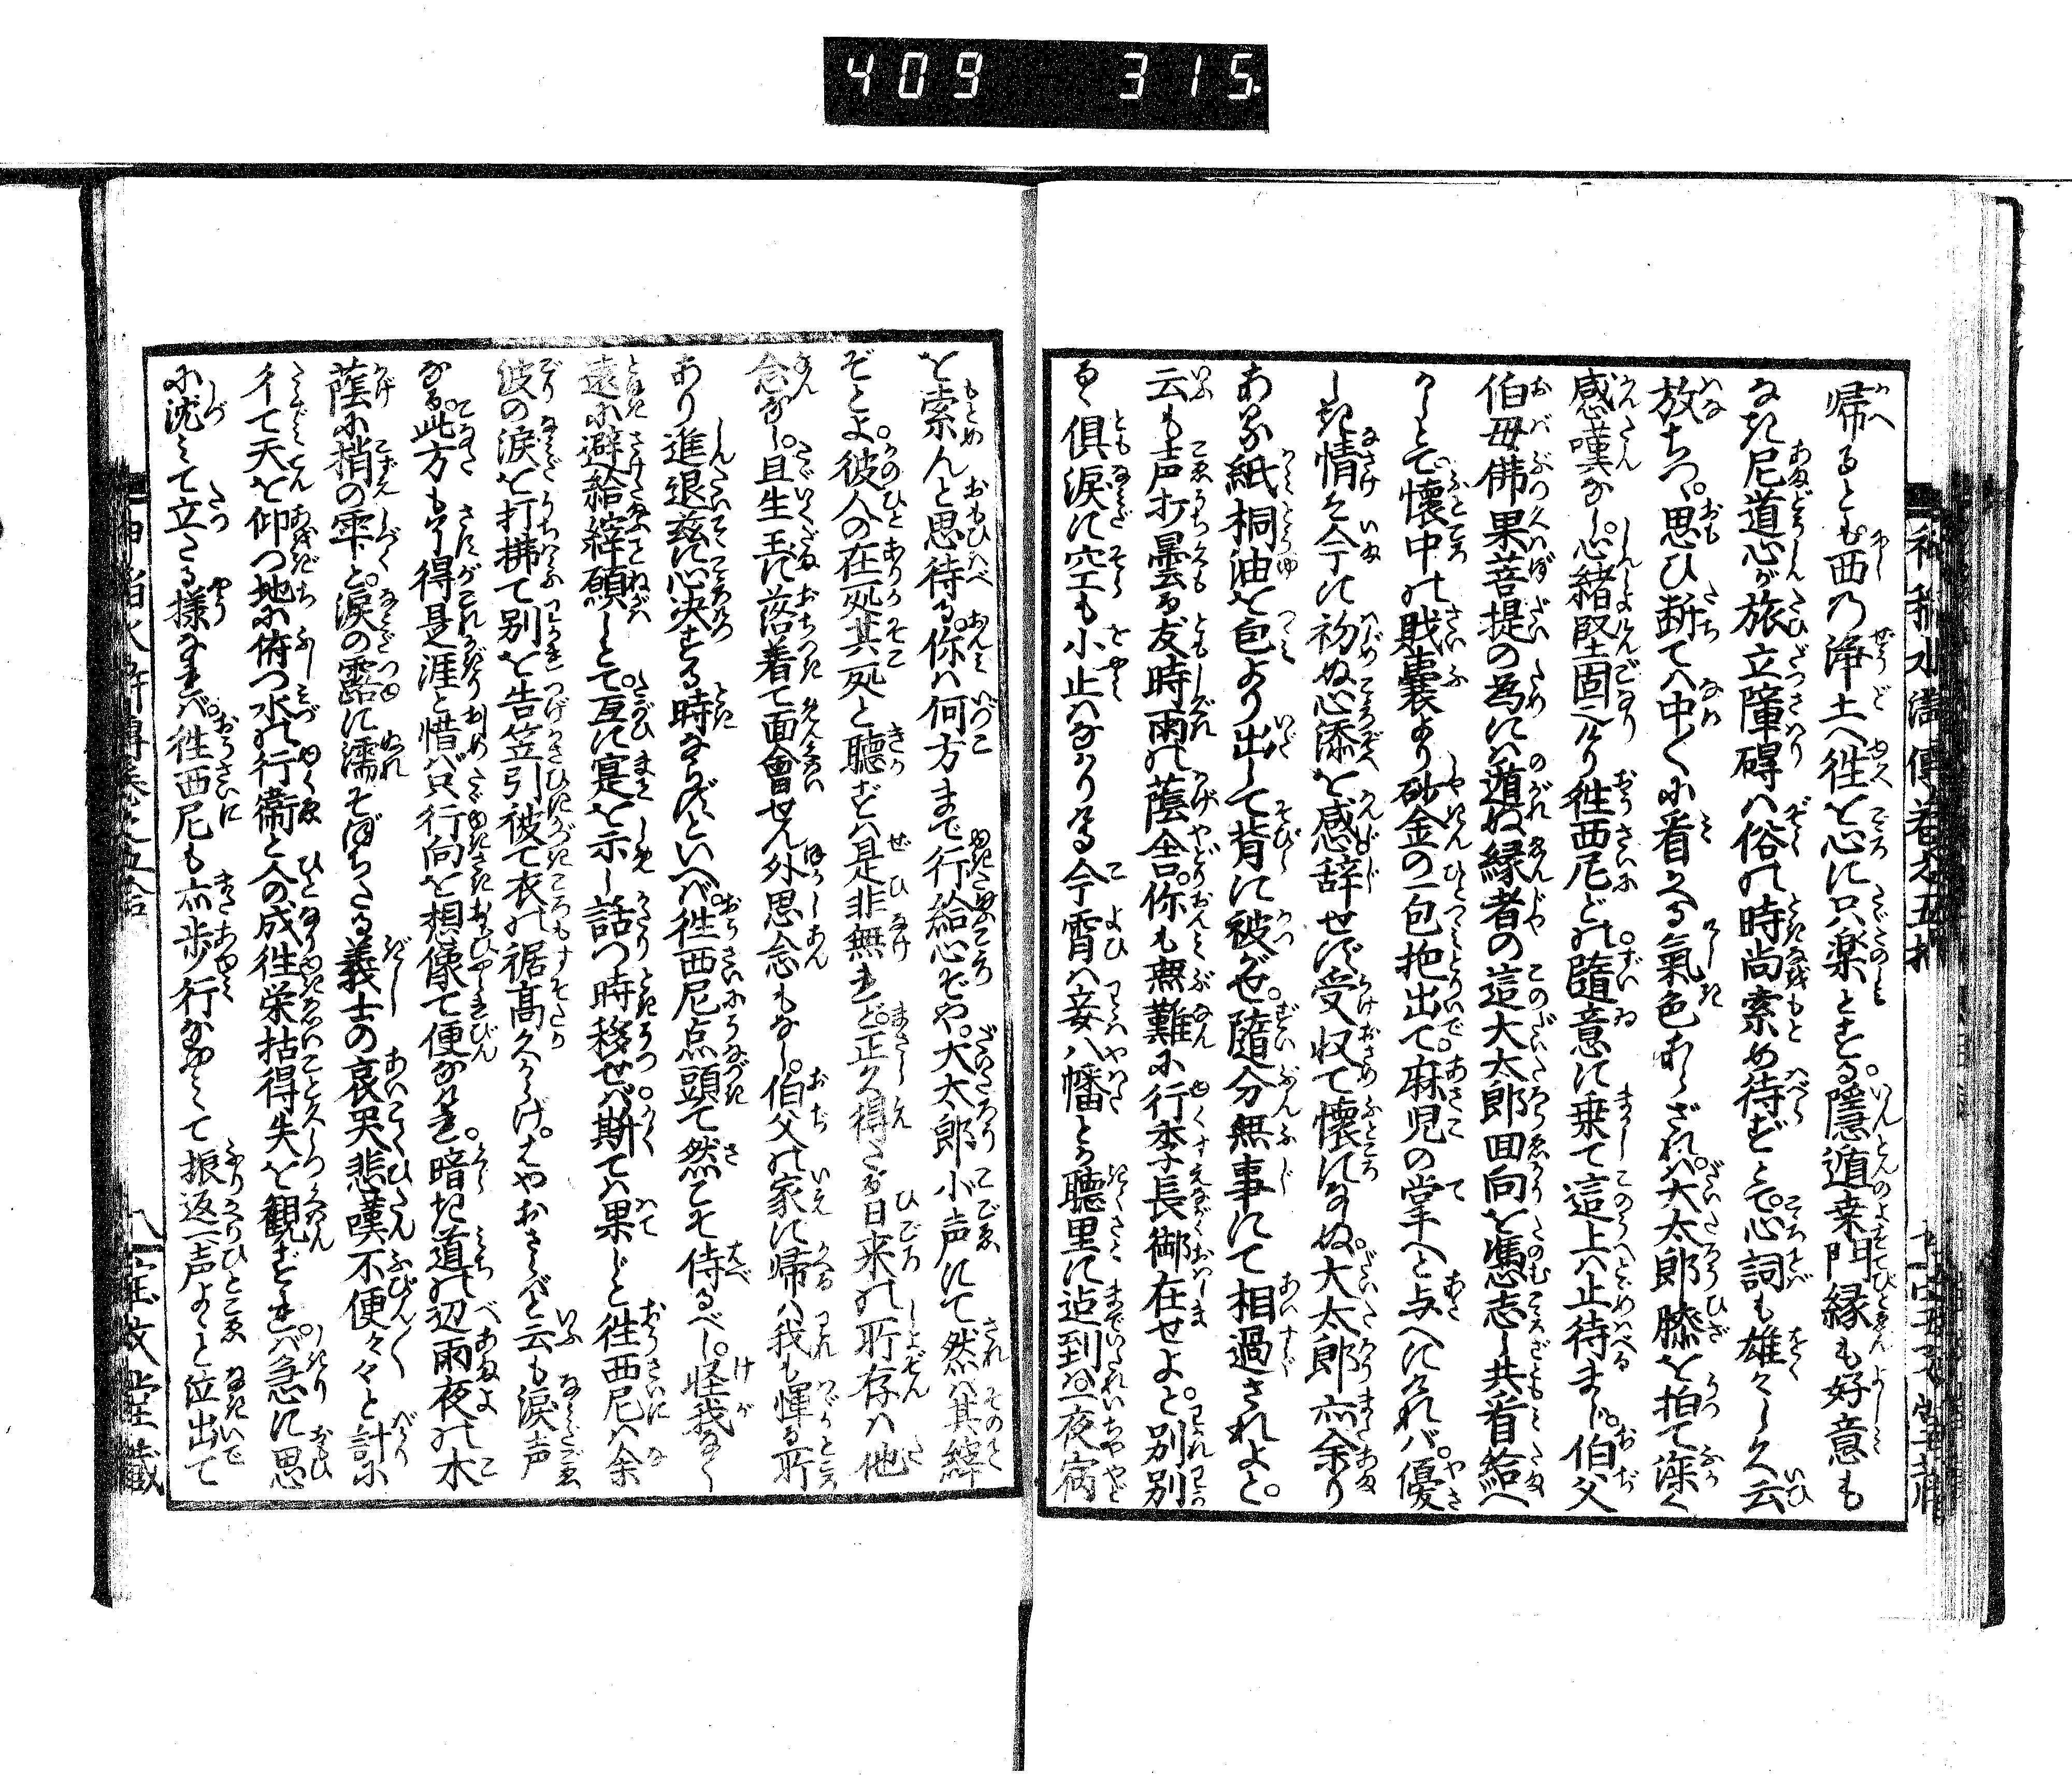 409 315.
帰るとも西の浄土へ徃を心に只楽とする。隠遁桒門縁も好意も
なき尼道心が旅立障碍ハ俗の時尚索め待ずとて。心詞も雄々しく云
放ちつ。思ひ断てハ中〱に看へる氣色あらざれバ大太郎膝を拍て深く
感嘆なし。心緒堅固なり徃西尼どの。隨意に乗て這上ハ止待まじ。伯父
伯母佛果菩提の為にハ遁ぬ縁者の這大太郎回向を憑志し共首給へ
かしとて懐中の財嚢より砂金の一包把出て。麻児の掌へと与へにけれバ。優
しき情ハ今に初ぬ心添を感じ辞せず受収て懐になぬ。大太郎亦余り
ある紙桐油を包より出して背に被がせ。隨分無事にて相過されよと。
云も声打曇る友時雨の蔭舎。你も無難に行李長御在せよと。別別
るゝ俱涙に空も小止ハなかりける今宵ハ妾八幡とか聴里に迠到バ一夜病
を索んと思待る。你ハ何方まで行給心ぞや。大太郎小声にて然バ其緯
ぞとよ。彼人の在処其処と聴ずハ是非無けれど。正しく得たる日来の所存ハ他
念なし。且生玉に落着て面會せん外思念もなし。伯父の家に帰ハ我も憚る所
あり進退茲に心决する時ならずといへバ。徃西尼点頭て然こそ侍るべし。怪我なく
遠に避給緯願しとて。互に寔を示し話つ時移せバ斯てハ果じと徃西尼ハ余
波の涙を打拂て別を告笠引被て衣の裾高くからげ。はやおさらバと云も涙声
なる。此方もうち得是涯と惜バ只行向を想像て便なけれ。暗き道の辺雨夜の木
蔭に梢の雫と。涙の露に濡そぼちたる義士の哀哭悲嘆不便々々と計に
彳て天を仰つ地に俯つ水の行衛と人の成徃栄枯得失を観ずれバ。急に思
に沈みて立たる様なれバ。徃西尼も亦歩行なやみて振返一声よゝと泣出て